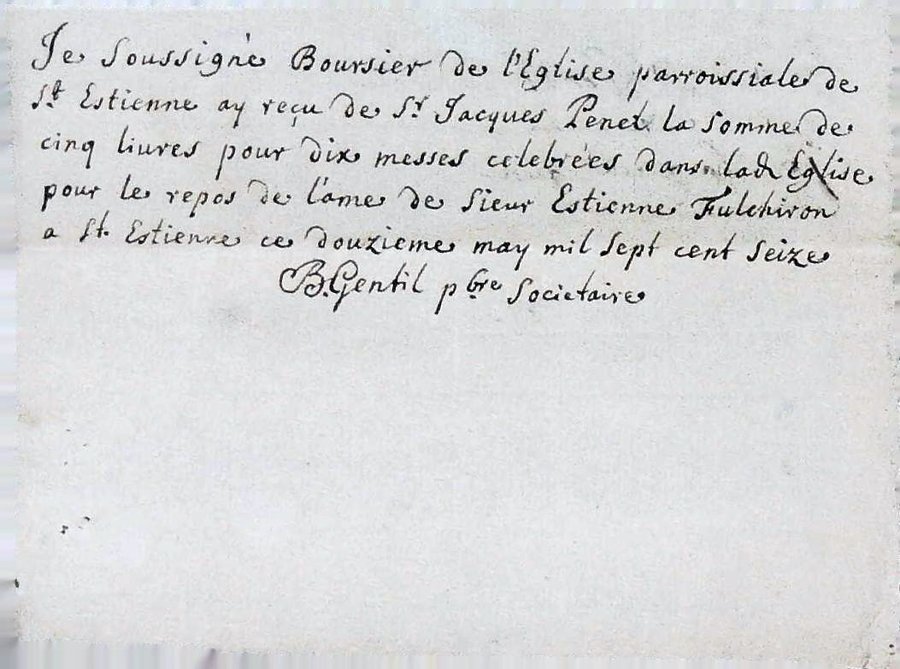 Je soussigné Boursier de l'Eglise parroissiale de
St Estienne ay reçu de Sr Jacques Penet la somme de
cinq liures pour dix messes celebrées dans lad Eglise
pour le repos de l'ame de sieur Estienne Fulchiron
a St. Estienne ce douzieme may mil sept cent seize
B. Gentil pbre societaire